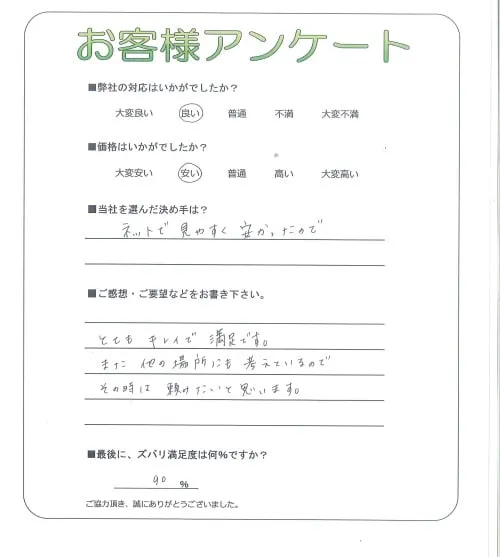 お客様アンケート
■弊社の対応はいかがでしたか？
大変良い 良い 普通 不満 大変不満
■価格はいかがでしたか？
大変安い 安い 普通 高い 大変高い
■当社を選んだ決め手は？
ネットで 見やすく 安かったので
■ご感想・ご要望などをお書き下さい。
とても キレイで 満足です。
また 他の場所にも 考えているので
その時は 頼みたいと思います。
■最後に、ズバリ満足度は何％ですか？
90 ％
ご協力頂き、誠にありがとうございました。